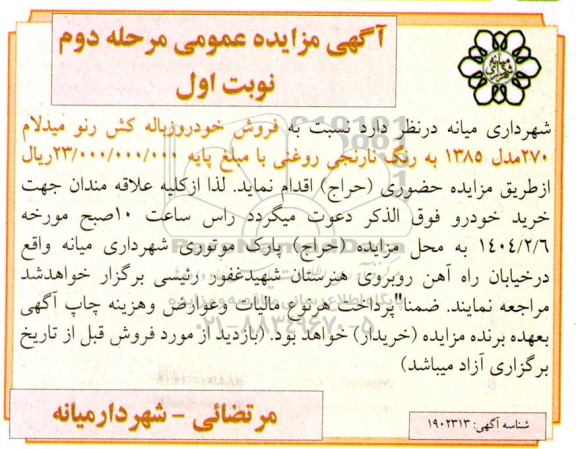 آگهی مزایده عمومی مرحله دوم
نوبت اول
شهرداری میانه درنظر دارد نسبت به فروش خودروزباله کش رنو میدلام
۲۷۰مدل ۱۳۸۵ به رنگ نارنجی روغنی با مبلغ پایه ۲۳/۰۰۰/۰۰۰/۰۰۰ریال
ازطریق مزایده حضوری (حراج) اقدام نماید. لذا ازکلیه علاقه مندان جهت
خرید خودرو فوق الذکر دعوت میگردد راس ساعت ۱۰صبح مورخه
۱۴۰۴/۲/۶ به محل مزایده (حراج) پارک موتوری شهرداری میانه واقع
درخیابان راه آهن روبروی هنرستان شهیدغفور رئیسی برگزار خواهدشد
مراجعه نمایند. ضمنا"پرداخت هرنوع مالیات وعوارض وهزینه چاپ آگهی
بعهده برنده مزایده (خریدار) خواهد بود. (بازدید از مورد فروش قبل از تاریخ
برگزاری آزاد میباشد)
مرتضائی - شهردارمیانه
شناسه آگهی: ۱۹۰۲۳۱۳
ParsNamadData
۰۲۱-۸۸۳۴۹۶۷۰-۵